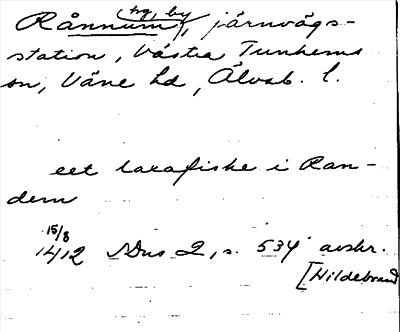 hg, by
Rånnum, järnvägs-
station, Västra Tunhems
sn, Väne hd, Älvsb. l.
eet laxafiske i Ran-
dem
15/8
1412 SDns 2, s. 534 avskr.
[Hildebrand